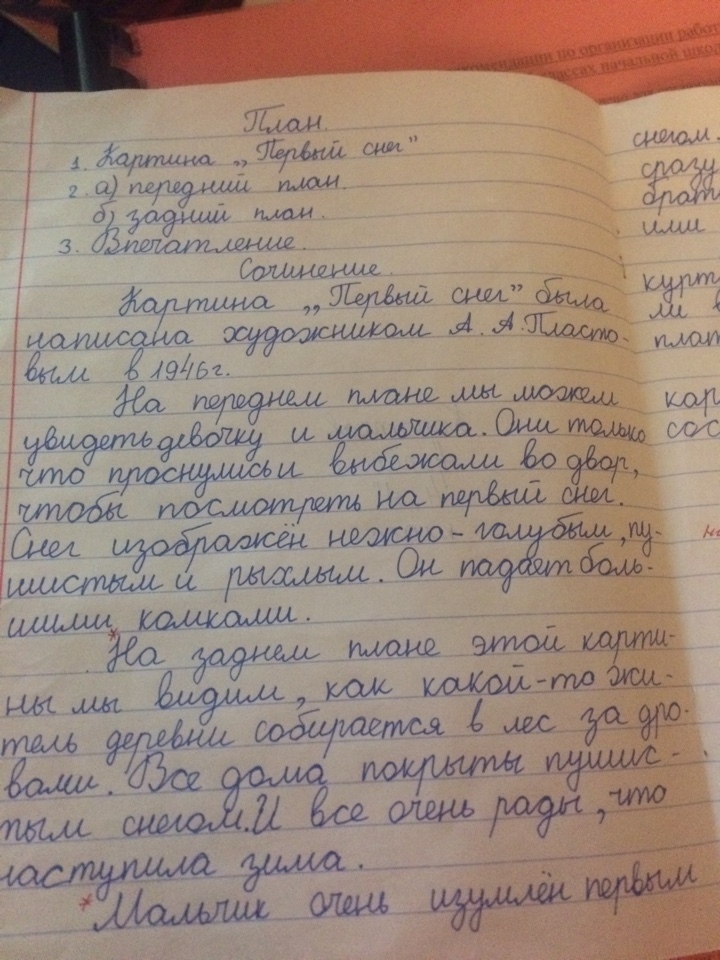 комендации по организации работ
классах начальной шко
План.
1. Картина „Первый снег"
2. а) передний план.
б) задний план.
3. Впечатление.
Сочинение.
Картина „Первый снег" была
написана художником А. А. Пласто-
вым в 1946г.
На переднем плане мы можем
увидеть девочку и мальчика. Они только
что проснулись и выбежали во двор,
чтобы посмотреть на первый снег.
Снег изображён нежно-голубым, пу-
шистым и рыхлым. Он падает боль-
шими комками.
*На заднем плане этой карти-
ны мы видим, как какой-то жи-
тель деревни собирается в лес за дро-
вами. Все дома покрыты пушис-
тым снегом. И все очень рады, что
наступила зима.
*Мальчик очень изумлён первым
снегом.
сразу
брат
или
курт
ли в
плат
кар
сос